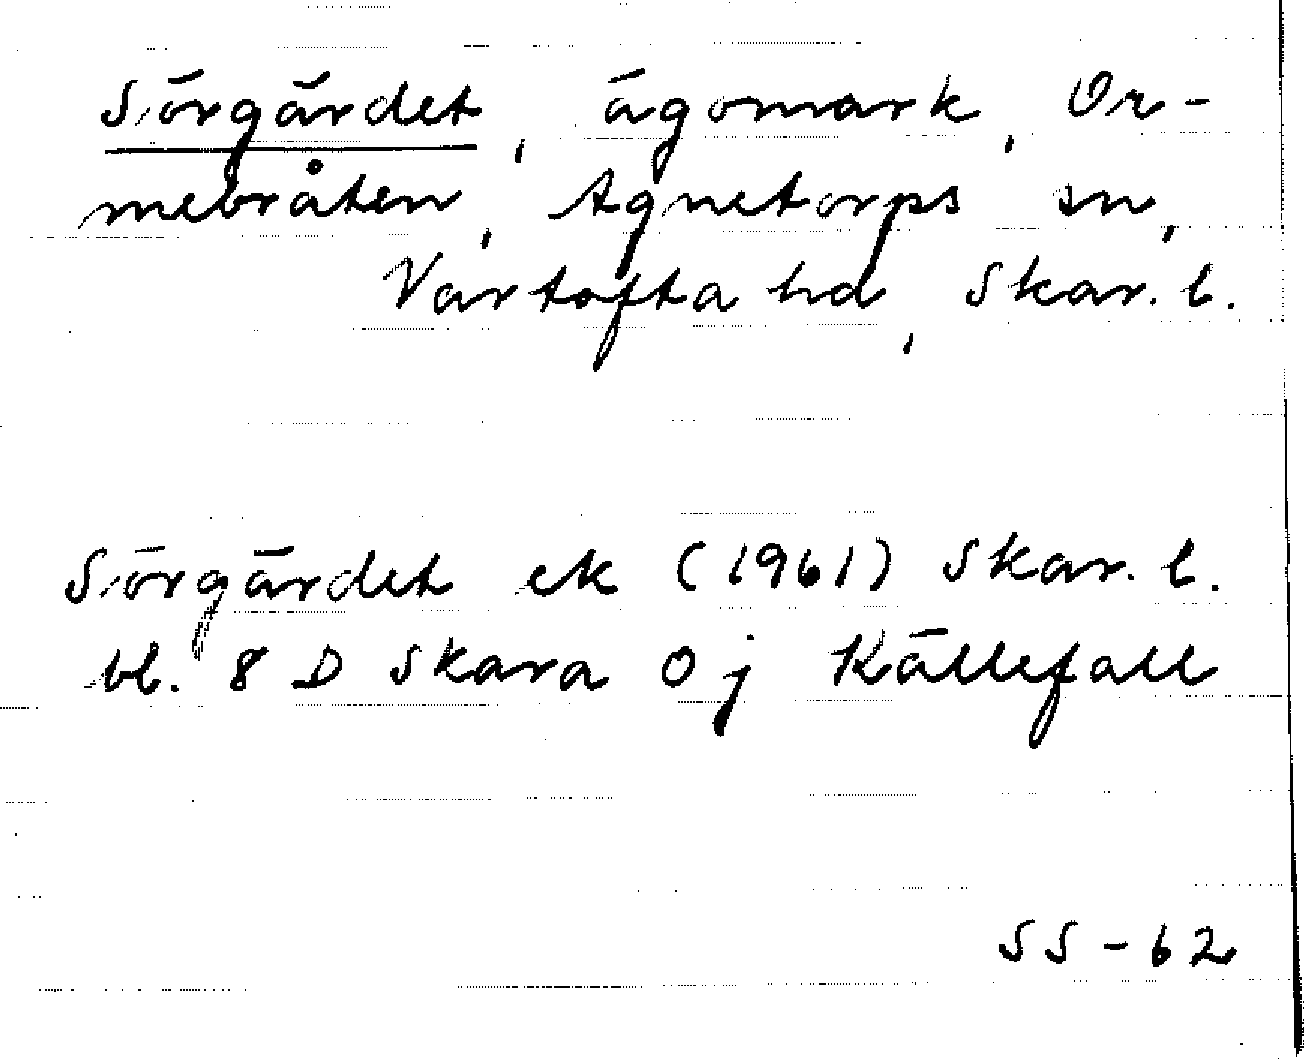 Sörgärdet, ägomark, Or-
mebråten, Agnetorps sn,
Vartofta hd, Skar. l.
Sörgärdet ek (1961) Skar. l.
bl. 8 D Skara 0 j Källefall
SS-62